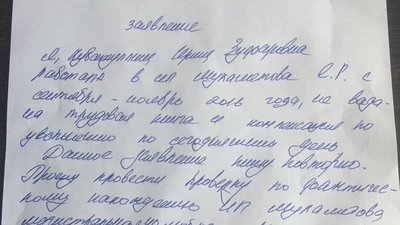 заявление
Я, Зуфаровна
работала в ип Мухаметова Е.Р. с
сентября - ноябрь 2016 года, не выда-
на трудовая книга и компенсация по
увольнению по сегодняшний день
Данное заявление пишу повторно.
Прошу провести проверку по фактичес-
кому нахождению ИП Мухаметова